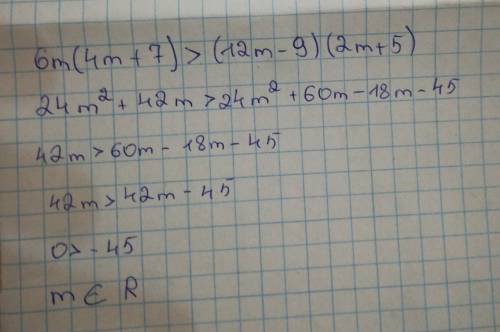 6m(4m+7)>(12m-9)(2m+5)
24m²+42m>24m²+60m-18m-45
42m>60m-18m-45
42m>42m-45
0>-45
m ∈ R